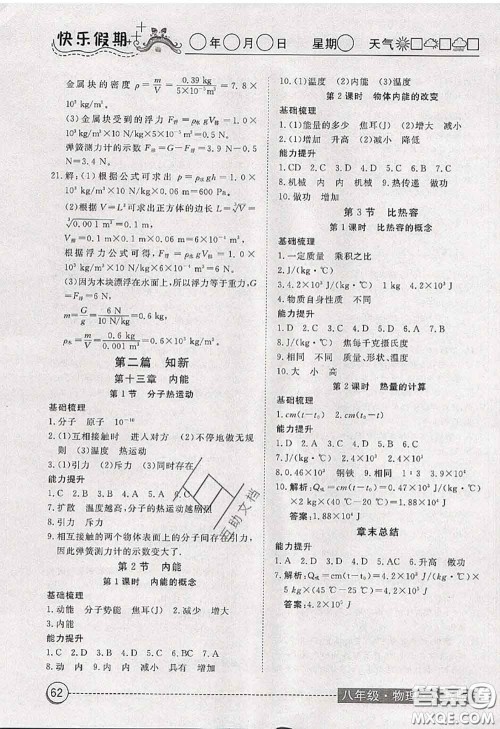 快乐假期
○年○月○日 星期○ 天气
金属块的密度 ρ=m/V=0.39 kg/5×10⁻⁵ m³=7.8×
10³ kg/m³;
(3)金属块受到的浮力 F浮=ρ水gV排=1.0×
10³ kg/m³×10 N/kg×5×10⁻⁵ m³=0.5 N,
弹簧测力计的示数 F拉=G-F浮=3.9 N-0.5
N=3.4 N。
21.解:(1)根据公式可求出 p=ρ水gh=1.0×
10³ kg/m³×10 N/kg×0.06 m=600 Pa。
(2)根据 V=L³可求得正方体的边长 L=∛V=
∛0.001 m³=0.1 m,
V排=0.1 m×0.1 m×0.06 m=6×10⁻⁴ m³,
根据浮力公式可求得: F浮=ρ水gV排=1.0×
10³ kg/m³×10 N/kg×6×10⁻⁴ m³=6 N。
(3)因为木块漂浮在水面上,所以浮力等于重力
F浮=6 N,
m=G/g=6 N/10 N/kg=0.6 kg,
ρ=m/V=0.6 kg/0.001 m³=0.6×10³ kg/m³。
第二篇 知新
第十三章 内能
第1节 分子热运动
基础梳理
1.分子 原子 10⁻¹⁰
2.(1)互相接触时 进入对方 (2)不停地做无规
则 (3)温度
3.(1)引力 (2)斥力 (3)同时存在
能力提升
1.C 2.B 3.B 4.A 5.A 6.D
7.扩散 温度越高,分子的热运动越剧烈
8.引力 斥力
9.相互接触的两个物体表面上的分子间存在引力,
因此弹簧测力计的示数变大了。
第2节 内能
第1课时 内能的概念
基础梳理
1.动能 分子势能 焦耳(J) 2.大
能力提升
1.C 2.B 3.B 4.B 5.C 6.C 7.AC
8.动 内 9.内 不一定 内 不一定
10.(1)温度 (2)内能 (3)温度
第2课时 物体内能的改变
基础梳理
1.(1)能量的多少 焦耳(J) (2)增大 减小
2.(1)增加 升高 (2)减小 减小
能力提升
1.CD 2.C 3.D 4.C 5.C 6.B 7.CD
8.机械 内 内 机械 9.热传递 做功
10.做功 增加
第3节 比热容
第1课时 比热容的概念
基础梳理
1.一定质量 乘积之比
2.J/(kg·℃) 焦每千克摄氏度
3.4.2×10³ J/(kg·℃) 4.2×10³ J
4.物质自身性质 不同
能力提升
1.D 2.C 3.D 4.A 5.D 6.AC
7.J/(kg·℃) 8.2.1×10³ J/(kg·℃)
9.热量 不同 质量、形状、温度
10.大 小 高
第2课时 热量的计算
基础梳理
1.cm(t-t₀) 2.cm(t₀-t)
能力提升
1.D 2.C 3.A 4.A 5.D 6.D 7.D
8.0.46×10³ 钢铁 9.相同 升高
10.解析:Q吸=cm(t-t₀)=0.46×10³ J/
答案:1.84×10⁴ J
章末总结
能力提升
1.A 2.D 3.D 4.D 5.AC 6.升高 做功
7.解析:Q吸=cm(t-t₀)
答案:4.2×10⁵ J
62
八年级·物理
互助文档
答案圈
MXQE.COM